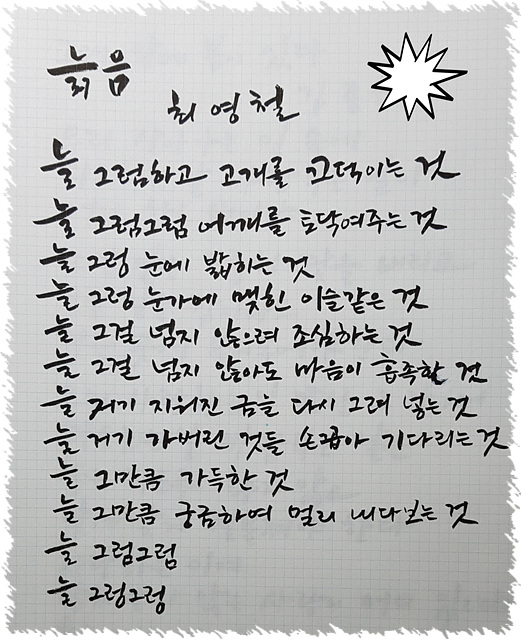 늙음
최영철
늘 그럼하고 고개를 끄덕이는 것
늘 그럼그럼 어깨를 토닥여주는 것
늘 그렁 눈에 밟히는 것
늘 그렁 눈가에 맺힌 이슬같은 것
늘 그걸 넘지 않으려 조심하는 것
늘 그걸 넘지 않아도 마음이 흡족할 것
늘 거기 지워진 금을 다시 그려 넣는 것
늘 거기 가버린 것들 손꼽아 기다리는 것
늘 그만큼 가득한 것
늘 그만큼 궁금하여 멀리 내다보는 것
늘 그럼그럼
늘 그렁그렁